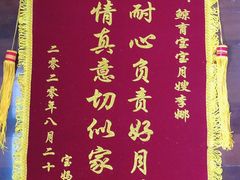 鲸育宝宝月嫂李娜
耐心负责好月
情真意切似家
二零二零年八月二十
宝妈